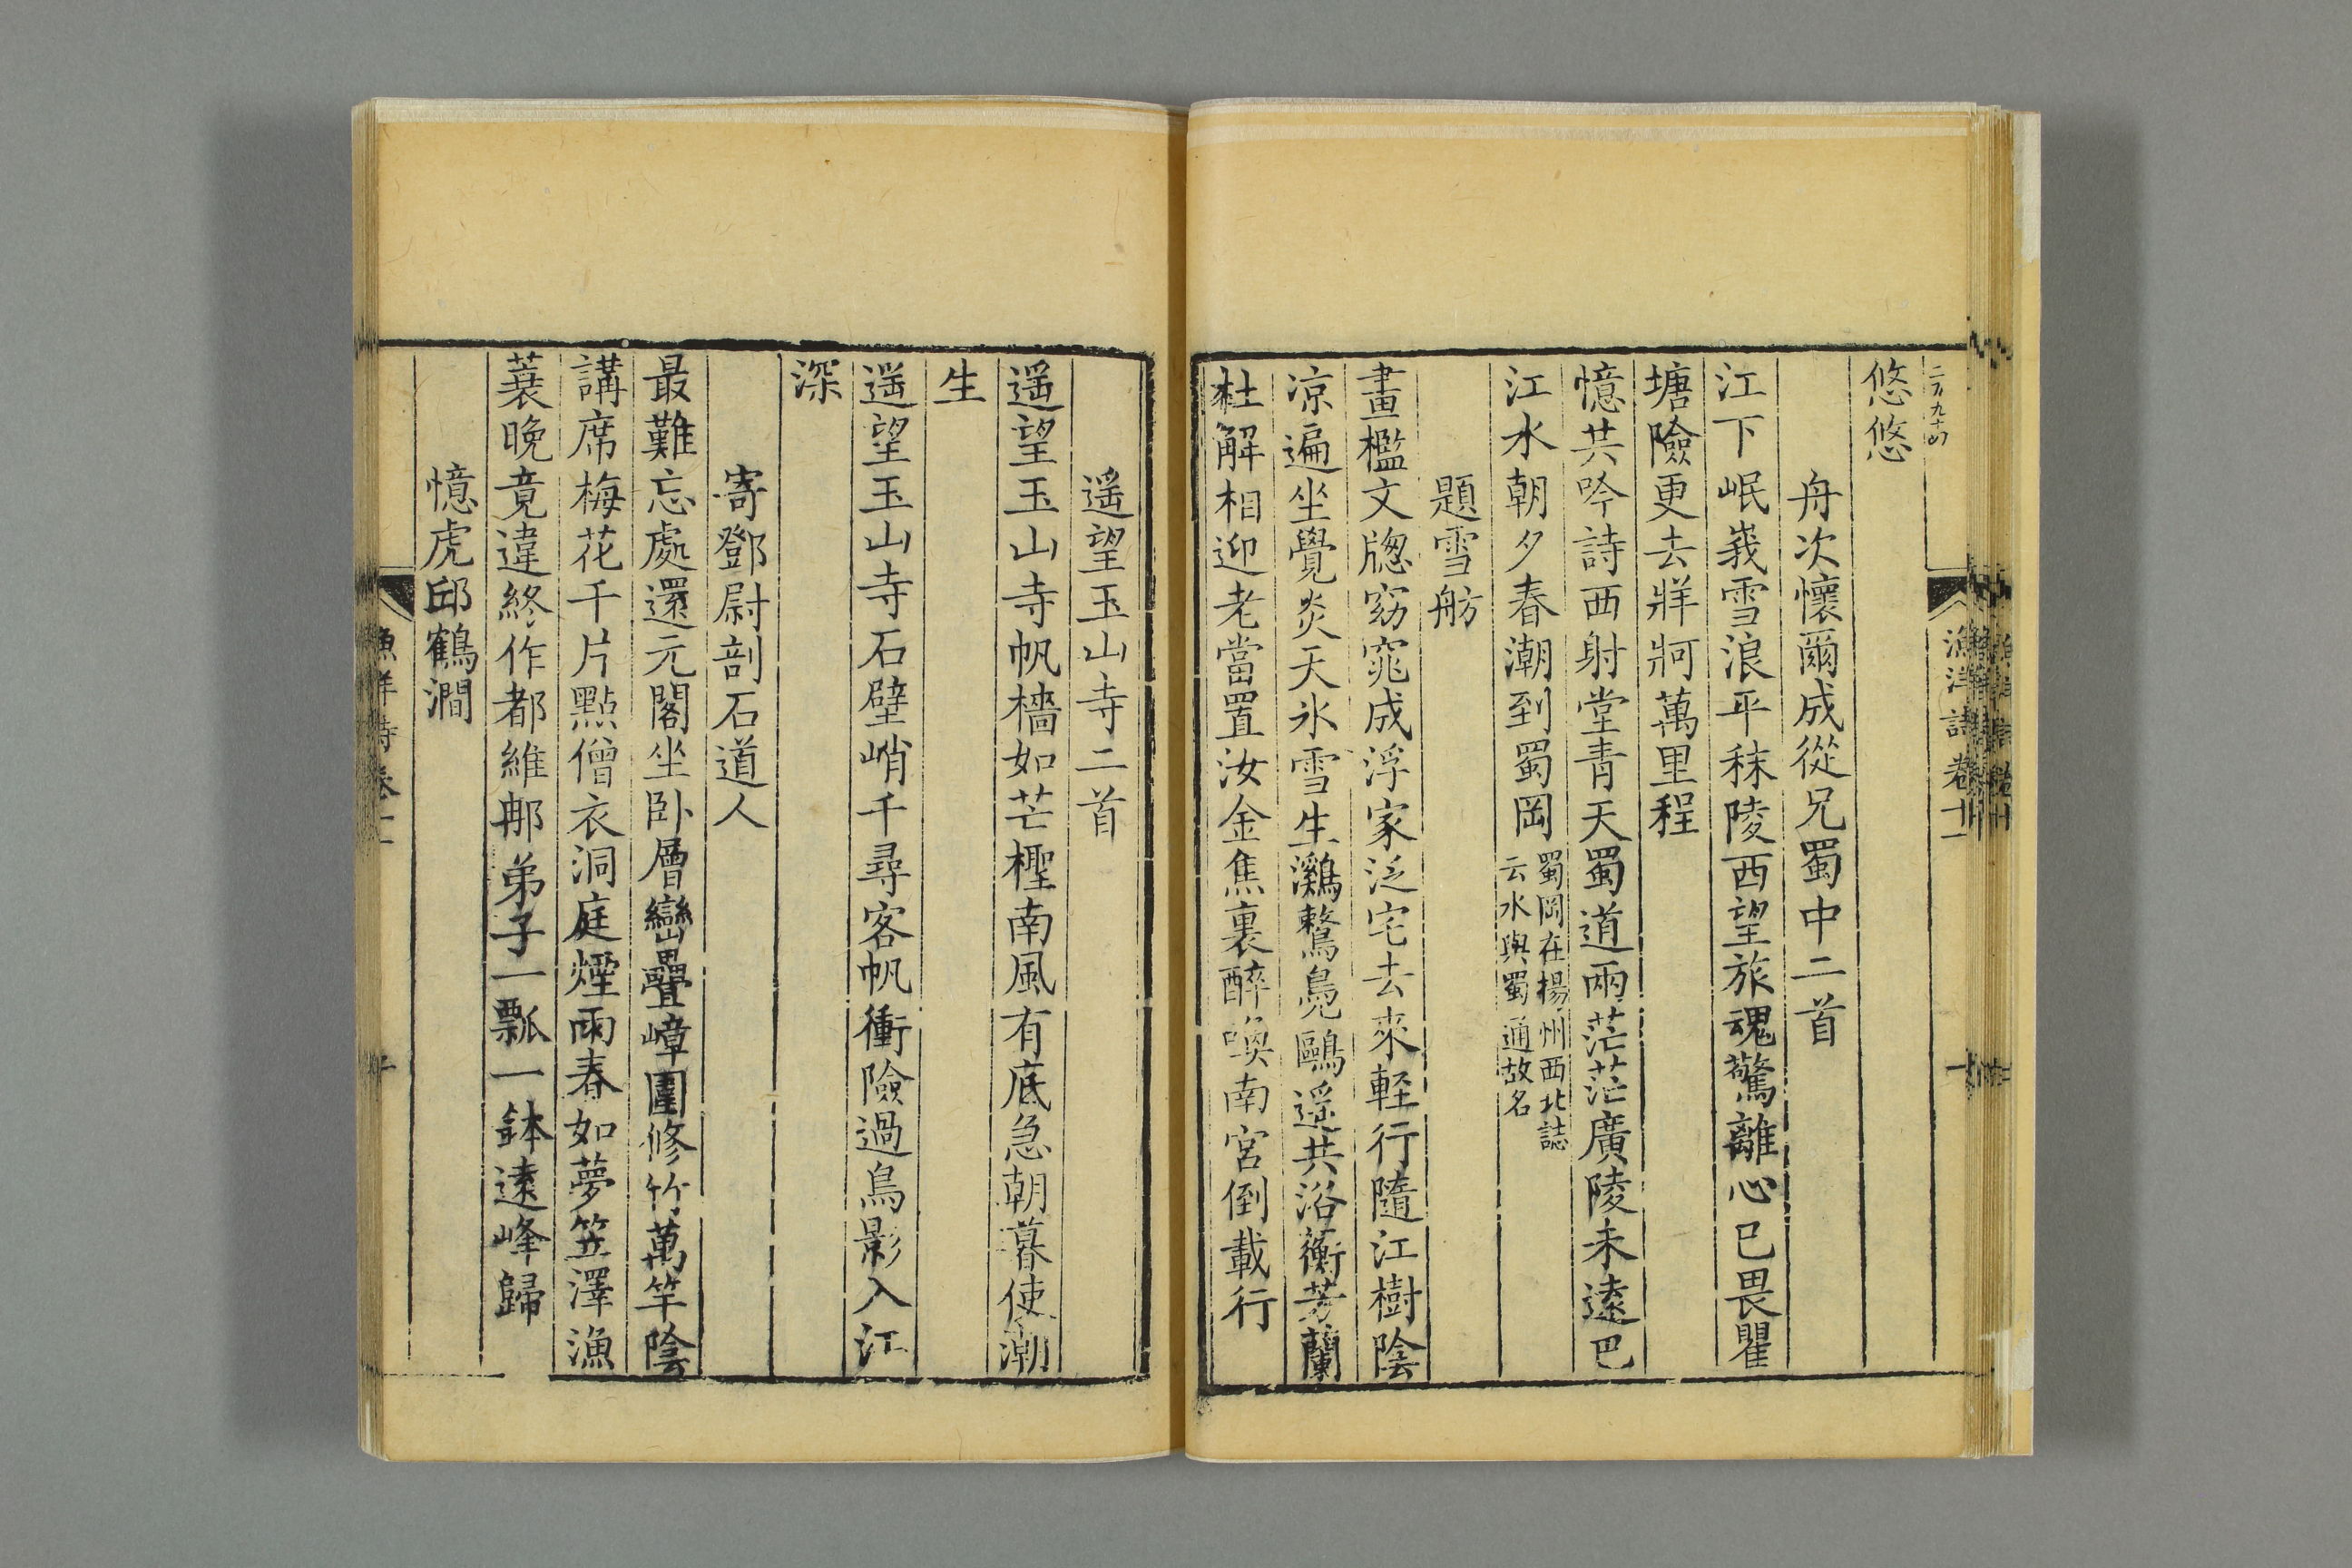 漁洋詩卷十一
悠悠
舟次懷爾成從兄蜀中二首
江下岷峩雪浪平秣陵西望旅魂驚離心已畏瞿
塘險更去牂牁萬里程
憶共吟詩西射堂青天蜀道兩茫茫廣陵未遠巴
江水朝夕春潮到蜀岡
蜀岡在揚州西北誌
云水與蜀通故名
題雪舫
畫檻文牎窈窕成浮家泛宅去來輕行隨江樹陰
凉遍坐覺炎天氷雪生鸂鷘鳧鷗遥共浴蘅芳蘭
杜解相迎老當置汝金焦裏醉喚南宮倒載行
遥望玉山寺二首
遥望玉山寺帆檣如芒檉南風有底急朝暮使潮
生
遥望玉山寺石壁峭千尋客帆衝險過鳥影入江
深
寄鄧尉剖石道人
最難忘處還元閣坐卧層巒疊嶂圍修竹萬竿陰
講席梅花千片點僧衣洞庭煙雨春如夢笠澤漁
蓑晚竟違終作都維那弟子一瓢一鉢遠峰歸
憶虎邱鶴澗
漁洋詩卷十一